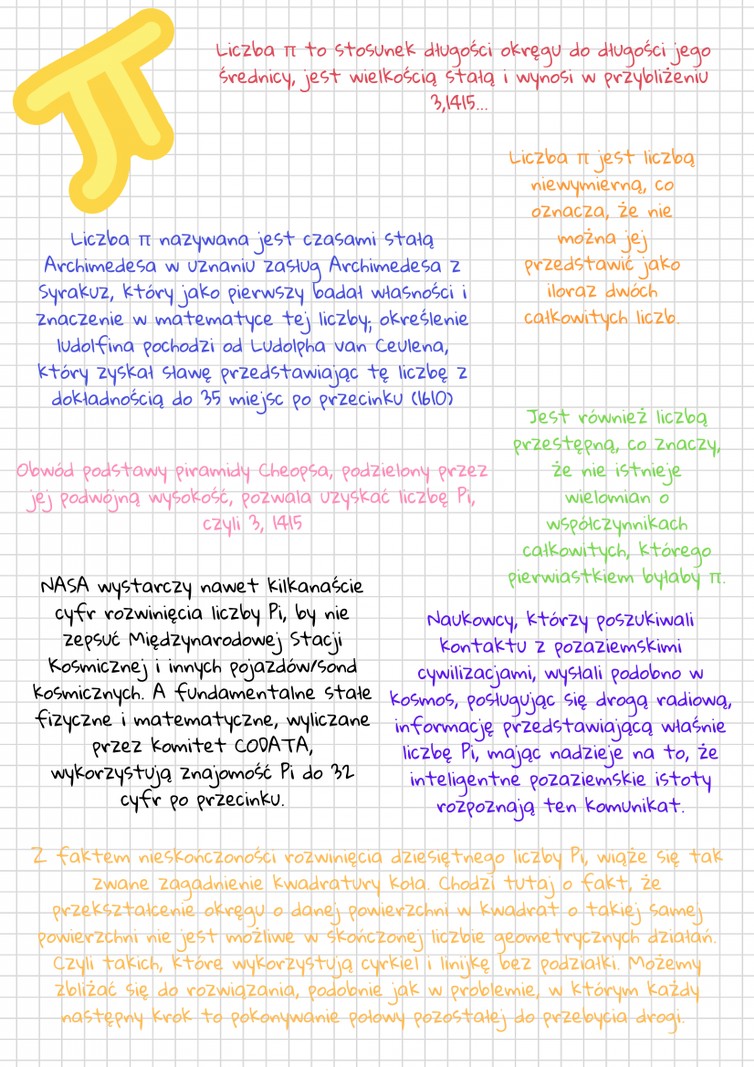 Liczba π to stosunek długości okręgu do długości jego
średnicy, jest wielkością stałą i wynosi w przybliżeniu
3,1415...
Liczba π jest liczbą
niewymierną, co
oznacza, że nie
można jej
przedstawić jako
iloraz dwóch
całkowitych liczb.
Liczba π nazywana jest czasami stałą
Archimedesa w uznaniu zasług Archimedesa z
Syrakuz, który jako pierwszy badał własności i
znaczenie w matematyce tej liczby; określenie
ludolfina pochodzi od Ludolpha van Ceulena,
który zyskał sławę przedstawiając tę liczbę z
dokładnością do 35 miejsc po przecinku (1610)
Jest również liczbą
przestępną, co znaczy,
że nie istnieje
wielomian o
współczynnikach
całkowitych, którego
pierwiastkiem byłaby π.
Obwód podstawy piramidy Cheopsa, podzielony przez
jej podwójną wysokość, pozwala uzyskać liczbę Pi,
czyli 3, 1415
NASA wystarczy nawet kilkanaście
cyfr rozwinięcia liczby Pi, by nie
zepsuć Międzynarodowej Stacji
Kosmicznej i innych pojazdów/sond
kosmicznych. A fundamentalne stałe
fizyczne i matematyczne, wyliczane
przez komitet CODATA,
wykorzystują znajomość Pi do 32
cyfr po przecinku.
Naukowcy, którzy poszukiwali
kontaktu z pozaziemskimi
cywilizacjami, wysłali podobno w
kosmos, posługując się drogą radiową,
informację przedstawiającą właśnie
liczbę Pi, mając nadzieje na to, że
inteligentne pozaziemskie istoty
rozpoznają ten komunikat.
Z faktem nieskończoności rozwinięcia dziesiętnego liczby Pi, wiąże się tak
zwane zagadnienie kwadratury koła. Chodzi tutaj o fakt, że
przekształcenie okręgu o danej powierzchni w kwadrat o takiej samej
powierzchni nie jest możliwe w skończonej liczbie geometrycznych działań.
Czyli takich, które wykorzystują cyrkiel i linijkę bez podziałki. Możemy
zbliżać się do rozwiązania, podobnie jak w problemie, w którym każdy
następny krok to pokonywanie połowy pozostałej do przebycia drogi.